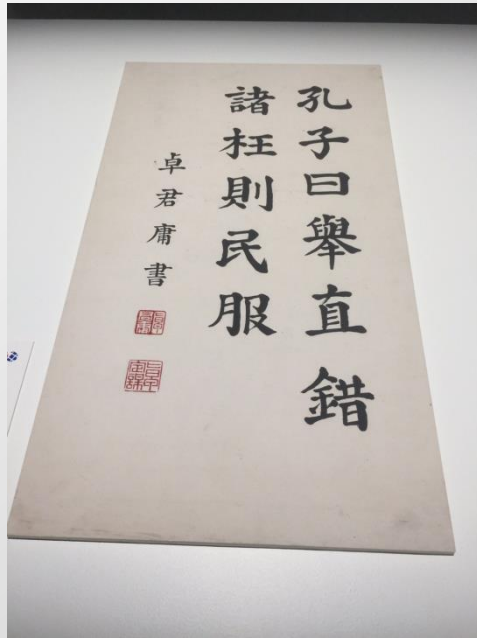 孔子曰舉直錯
諸枉則民服
卓君庸書